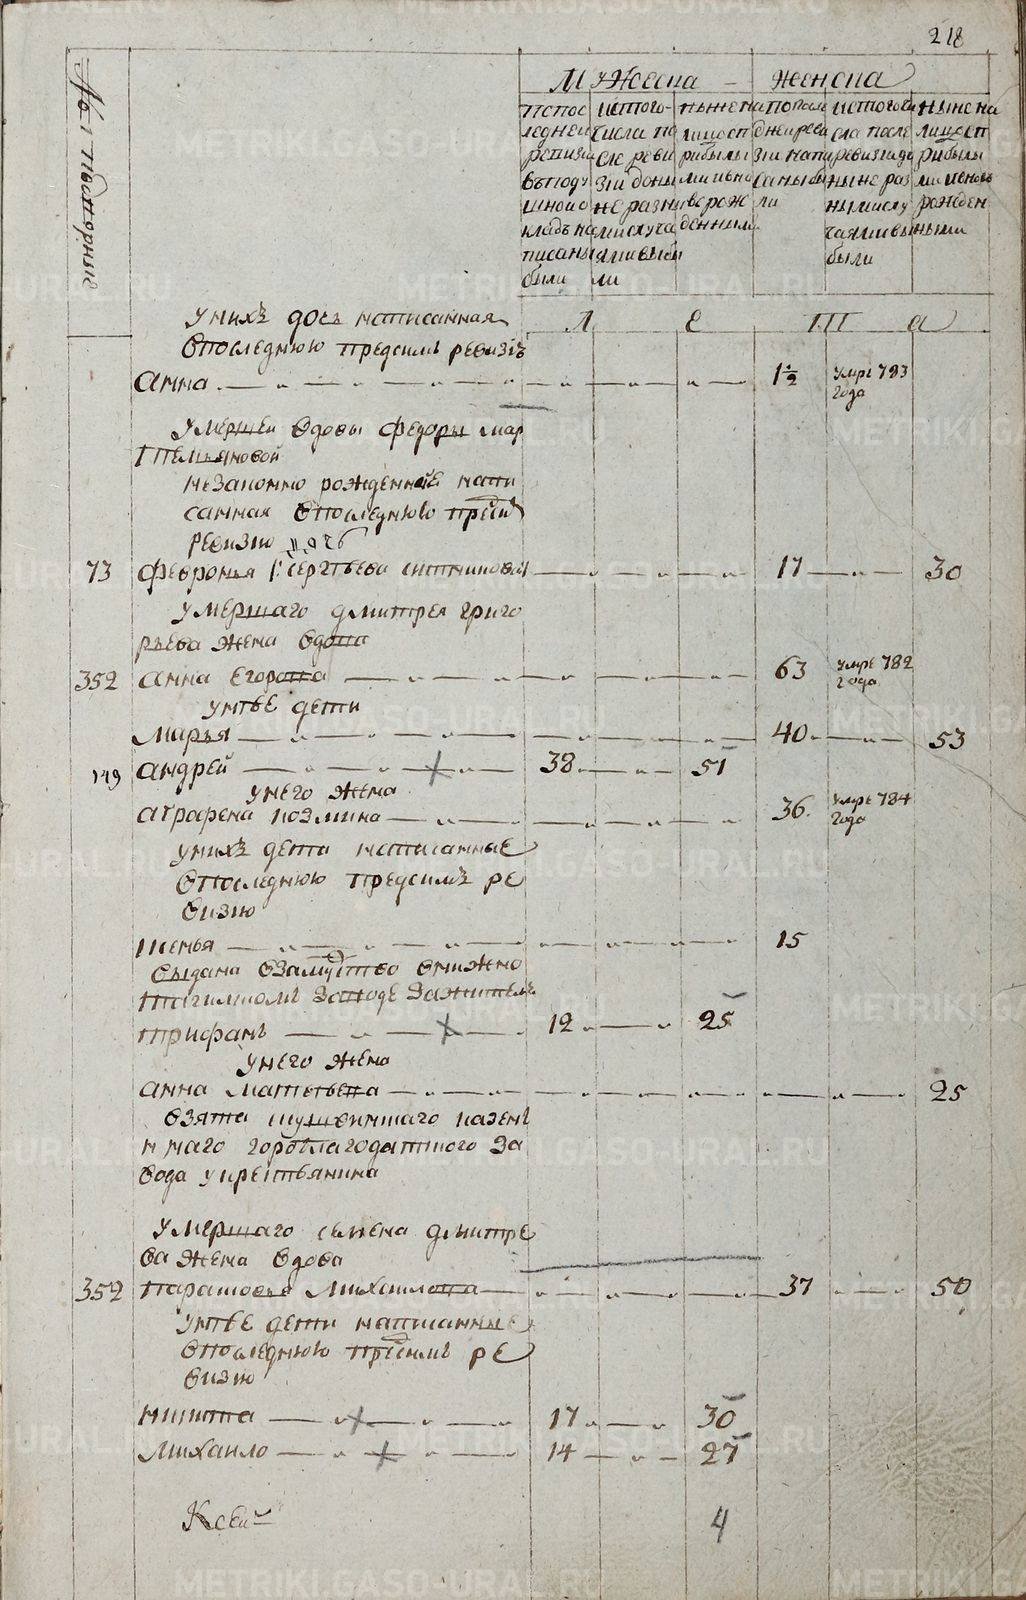 218
№ подворные
Мужеска — женска
После
ледней
ревизии
в поду
шной о
кладъ на
писаны
были
ис того
числа по
сле реви
зии до ны
не разн
ми случа
ями выбы
ли
ныне на
лицо съ п
рибылы
ми и вно
ворож
денными
по посл
дней реви
зии напи
саны бы
ли
ис того чи
сла после
ревизии до
ныне раз
ными слу
чаями вы
были
ныне на
лицо съ п
рибылы
ми и вновь
рожден
ными
у нихъ дочь написанная
в последнюю пред симъ ревизiю
Л е та
Анна 1/2 умре 783
года
умершей вдовы Федоры мар
темьяновой
незаконно рожденная напи
санная в последнюю пред симъ
ревизию дочь
73 Февронья Сергеева ситникова 17 30
умершаго дмитрея григо
рьева жена вдова
352 анна Егорова 63 умре 782
года
у нее дети
Марья 40 53
149 андрей 38 51
у него жена
аграфена козмина 36 умре 784
года
у нихъ дети написанные
в последнюю пред симъ ре
визию
ксенья 15
выдана в замужство в нижно
тагилскомъ заводе за жителя
трифанъ 12 25
у него жена
анна матвеева 25
взята кушвинскаго казен
наго гороблагодатского за
вода у крестьянина
умершаго семена дмитре
ва жена вдова
352 парасковья михаилова 37 50
у нее дети написанные
в последнюю пред симъ ре
визию
никита 17 30
михаило 14 27
4
METRIKI.GASO-URAL.RU